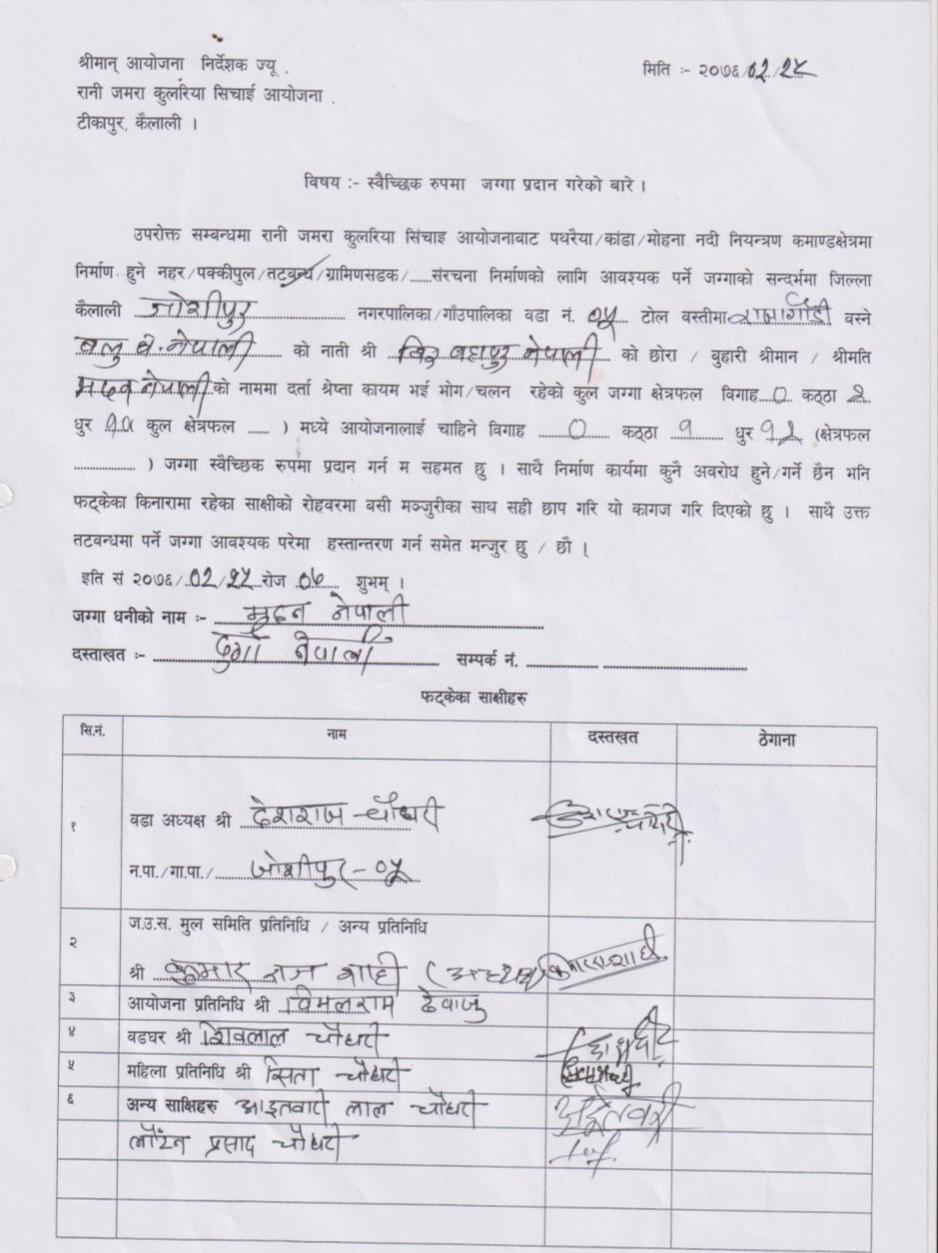 श्रीमान् आयोजना निर्देशक ज्यू .
मिति :- २०७६/०२/२५
रानी जमरा कुलरिया सिचाई आयोजना .
टीकापुर, कैलाली ।
विषय :- स्वैच्छिक रुपमा जग्गा प्रदान गरेको बारे ।
उपरोक्त सम्बन्धमा रानी जमरा कुलरिया सिंचाइ आयोजनाबाट पथरैया/कांडा/मोहना नदी नियन्त्रण कमाण्डक्षेत्रमा
निर्माण हुने नहर/पक्कीपुल/तटबन्ध/ग्रामिणसडक/......संरचना निर्माणको लागि आवश्यक पर्ने जग्गाको सन्दर्भमा जिल्ला
कैलाली जोशीपुर नगरपालिका/गाँउपालिका वडा नं. ०५ टोल वस्तीमा वस्ने
बलु ब. नेपाली को नाती श्री विर बहादुर नेपाली को छोरा / बुहारी श्रीमान / श्रीमति
नेपाली को नाममा दर्ता श्रेष्ता कायम भई भोग/चलन रहेको कुल जग्गा क्षेत्रफल विगाह ० कठ्ठा २
धुर कुल क्षेत्रफल ...... ) मध्ये आयोजनालाई चाहिने विगाह ० कठ्ठा १ धुर १२ (क्षेत्रफल
................ ) जग्गा स्वैच्छिक रुपमा प्रदान गर्न म सहमत छु । साथै निर्माण कार्यमा कुनै अवरोध हुने/गर्ने छैन भनि
फट्केका किनारामा रहेका साक्षीको रोहवरमा वसी मञ्जुरीका साथ सही छाप गरि यो कागज गरि दिएको छु । साथै उक्त
तटवन्धमा पर्ने जग्गा आवश्यक परेमा हस्तान्तरण गर्न समेत मन्जुर छु / छौ ।
इति सं २०७६/०२/२५ रोज ०७ शुभम् ।
जग्गा धनीको नाम :- मदन नेपाली
दस्ताखत :- दुर्गा नेपाली सम्पर्क नं. ................ ................
फट्केका साक्षीहरु
सि.नं. नाम दस्तखत ठेगाना
१ वडा अध्यक्ष श्री देशराज चौधरी
न.पा./गा.पा./ जोशीपुर-०५
२ ज.उ.स. मुल समिति प्रतिनिधि / अन्य प्रतिनिधि
श्री कुमार राज शाही (अध्यक्ष)
३ आयोजना प्रतिनिधि श्री विमलराम देवाजु
४ वडघर श्री शिवलाल चौधरी
५ महिला प्रतिनिधि श्री सिता चौधरी
६ अन्य साक्षिहरु आइतवारी लाल चौधरी
प्रसाद चौधरी